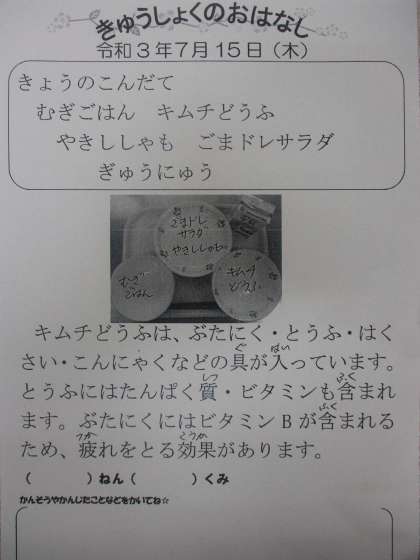 きゅうしょくのおはなし
令和3年7月15日(木)
きょうのこんだて
むぎごはん キムチどうふ
やきししゃも ごまドレサラダ
ぎゅうにゅう
ごまドレ
サラダ
やきししゃも
むぎ
ごはん
キムチ
どうふ
キムチどうふは、ぶたにく・とうふ・はく
さい・こんにゃくなどの具が入っています。
ぐ はい
とうふにはたんぱく質・ビタミンも含まれ
しつ ふく
ます。ぶたにくにはビタミンBが含まれる
ふく
ため、疲れをとる効果があります。
つか こうか
( )ねん( )くみ
かんそうやかんじたことなどをかいてね☆